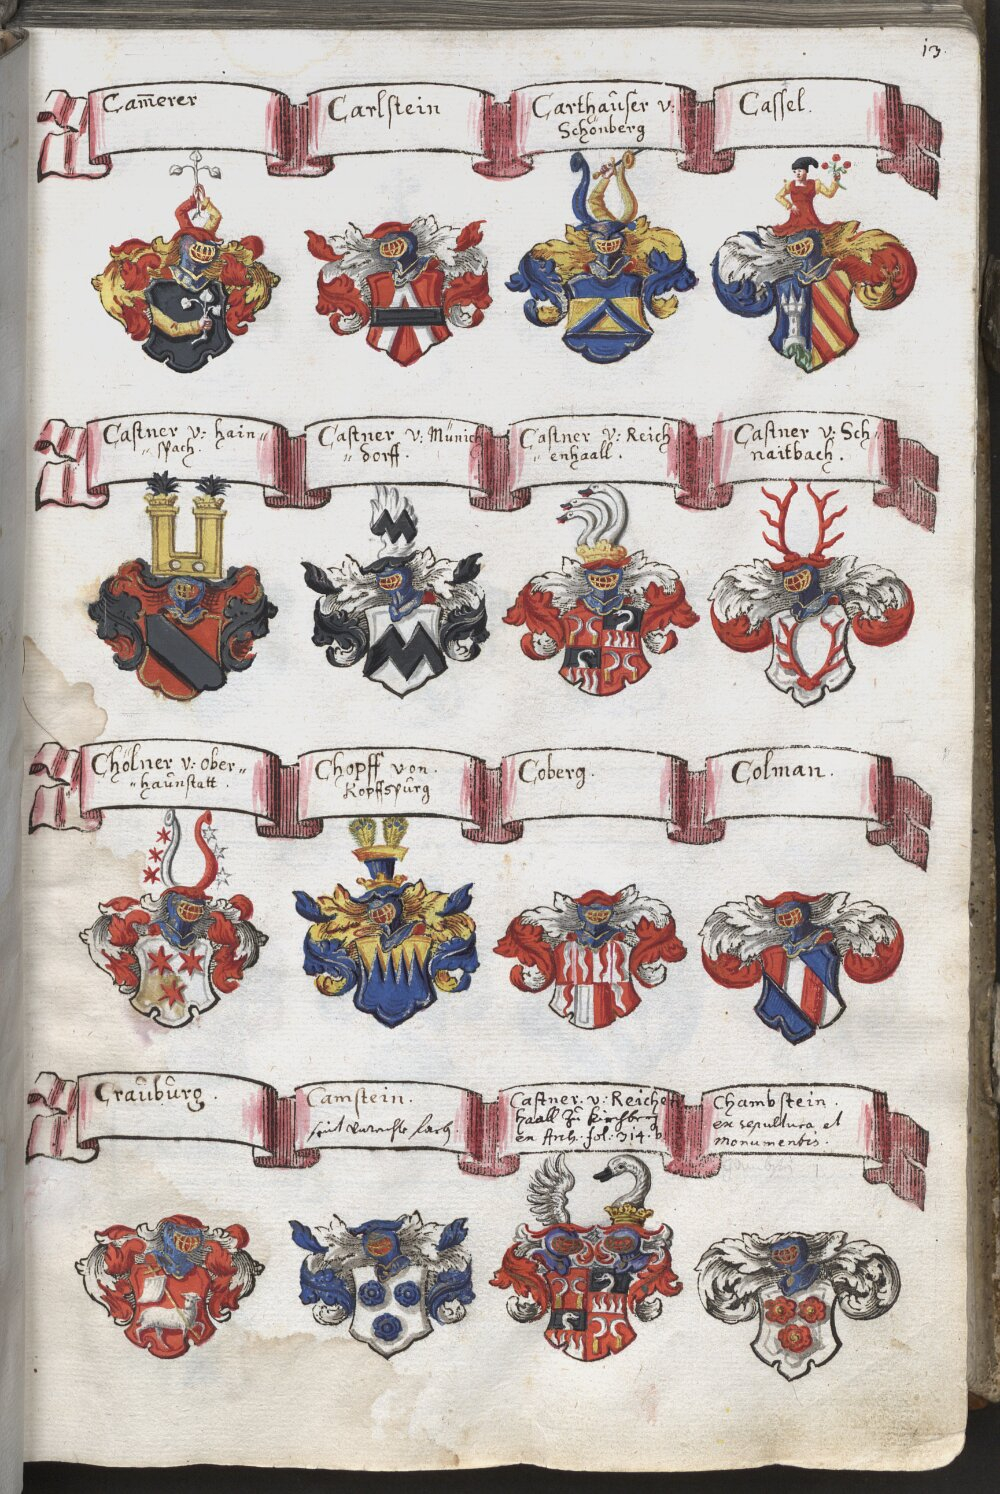 13.
Cam̅erer
Carlstein
Carthaűser v:
Schönberg
Cassel.
Castner v: hain„
„ spach.
Castner v: Münich
„ dorff.
Castner v: Reich
„ enhaall.
Castner v: Sch„
naitbach.
Chölner v: ober„
„haűnstatt.
Chopff von.
Kopffspűrg
Coberg.
Colman.
Craűbűrg.
Camstein.
Castner. v: Reichen
haall Zű kirchberg
en Arch. fol. 314. b
Chambstein.
ex sepultura et
monumentis.